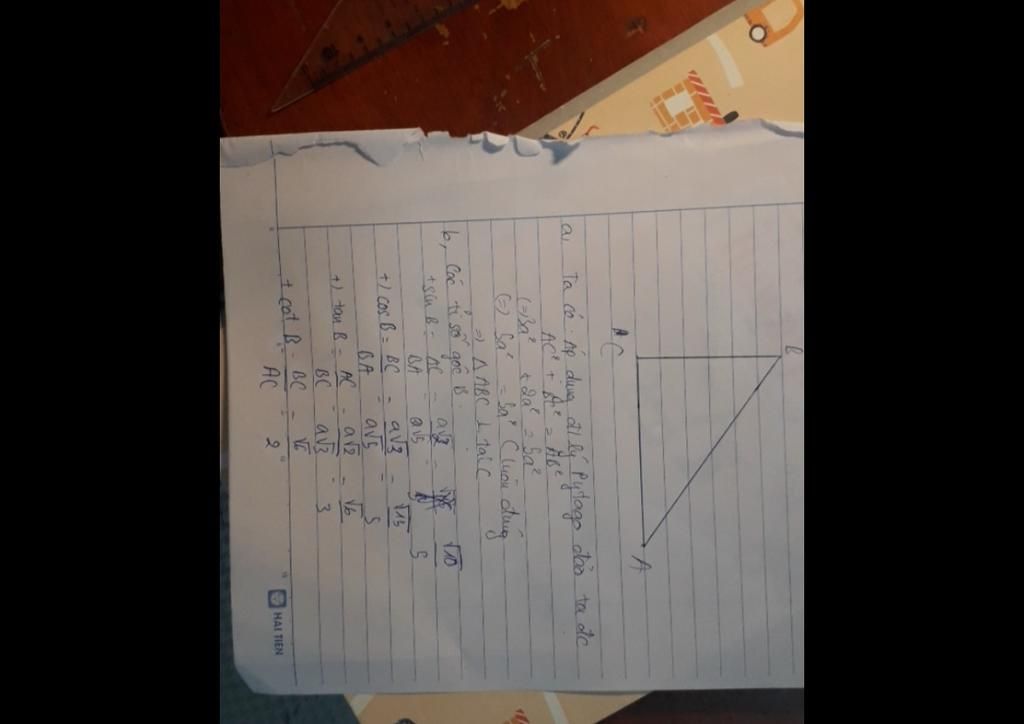 B
C
A
a, Ta có: Áp dụng đ/ lý Pytago đảo ta đc
AC² + BC² = AB²
(=) 3a² + 2a² = 5a²
(=) 5a² = 5a² (luôn đúng
=) Δ ABC ⊥ tại C
b, Các tỉ số góc B.
+ sin B = AC/BA = a√2/a√5 = √10/5
+) cos B = BC/BA = a√3/a√5 = √15/5
+) tan B = AC/BC = a√2/a√3 = √6/3
+ cot B = BC/AC = √6/2
HẢI TIẾN